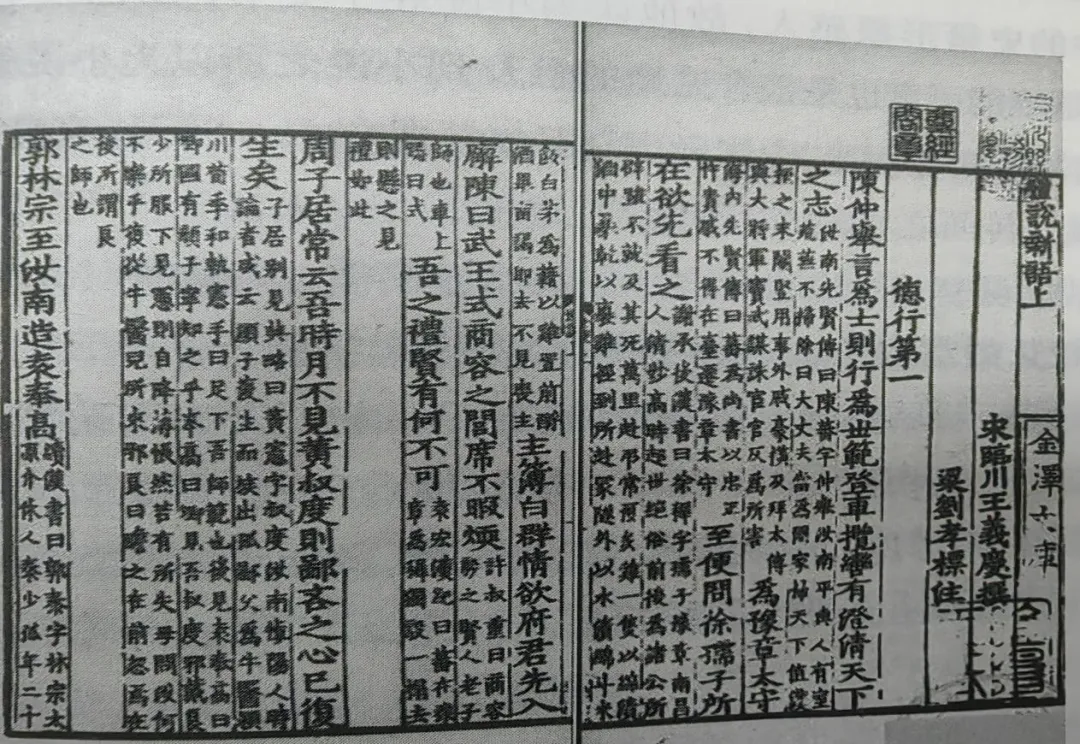 尊經閣章
世說新語上
金澤文庫
宋臨川王義慶撰
梁劉孝標注
德行第一
陳仲舉言為士則行為世範登車攬轡有澄清天下
之志汝南先賢傳曰陳蕃字仲舉汝南平輿人有室荒蕪不掃除曰大丈夫當為國家掃天下值漢
桓之末閹豎用事外戚豪橫及拜太傅與大將軍竇武謀誅宦官反為所害為豫章太守
海内先賢傳曰蕃為尚書以忠正忤貴戚不得在臺遷豫章太守至便問徐孺子所
在欲先看之謝承後漢書曰徐穉字孺子豫章南昌人清妙高時超世絕俗前後為諸公所
辟雖不就及其死萬里赴弔常預炙雞一隻以綿漬酒中暴乾以裹雞徑到所赴冢隧外以水漬綿斗米
飯白茅為藉以雞置前酹酒畢留謁即去不見喪主主簿白群情欲府君先入
廨陳曰武王式商容之閭席不暇煗許叔重曰商容殷之賢人老子
師也車上跽曰式吾之禮賢有何不可袁宏漢紀曰蕃在豫章為穉獨設一榻去
則懸之見禮如此
周子居常云吾時月不見黃叔度則鄙吝之心已復
生矣子居別見典略曰黃憲字叔度汝南慎陽人時論者咸云顏子復生而族出孤鄙父為牛醫潁
川荀季和執憲手曰足下吾師範也後見袁奉高曰卿國有顏子寧知之乎奉高曰卿見吾叔度邪戴良
少所服下見憲則自降薄悵然若有所失母問汝何不樂乎復從牛醫兒所來邪良曰瞻之在前忽焉在
後所謂良之師也
郭林宗至汝南造袁奉高續漢書曰郭泰字林宗太原介休人泰少孤年二十